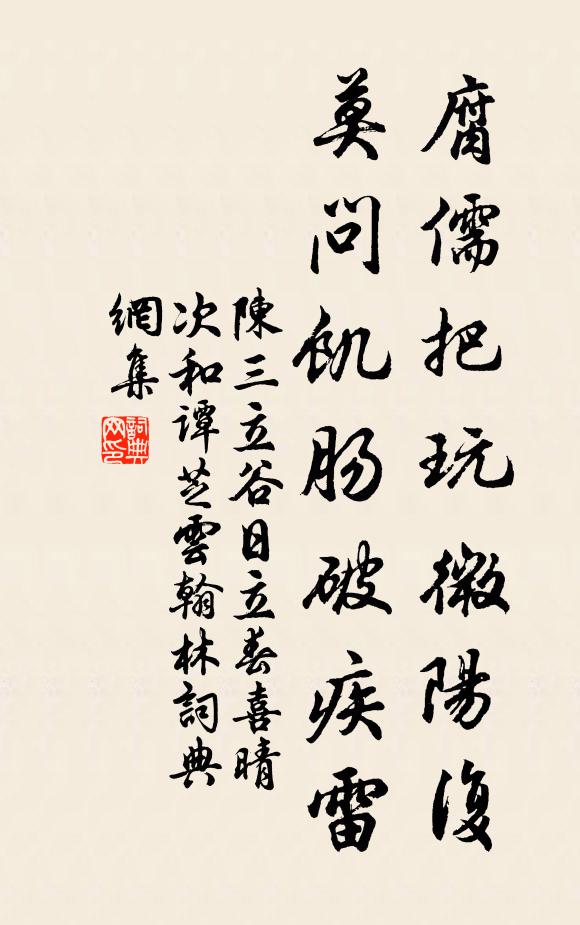 腐儒把玩微陽復
莫問飢腸破疾雷
陳三立谷日立春喜晴
次和譚芝雲翰林詞典
網集
詞典
网印